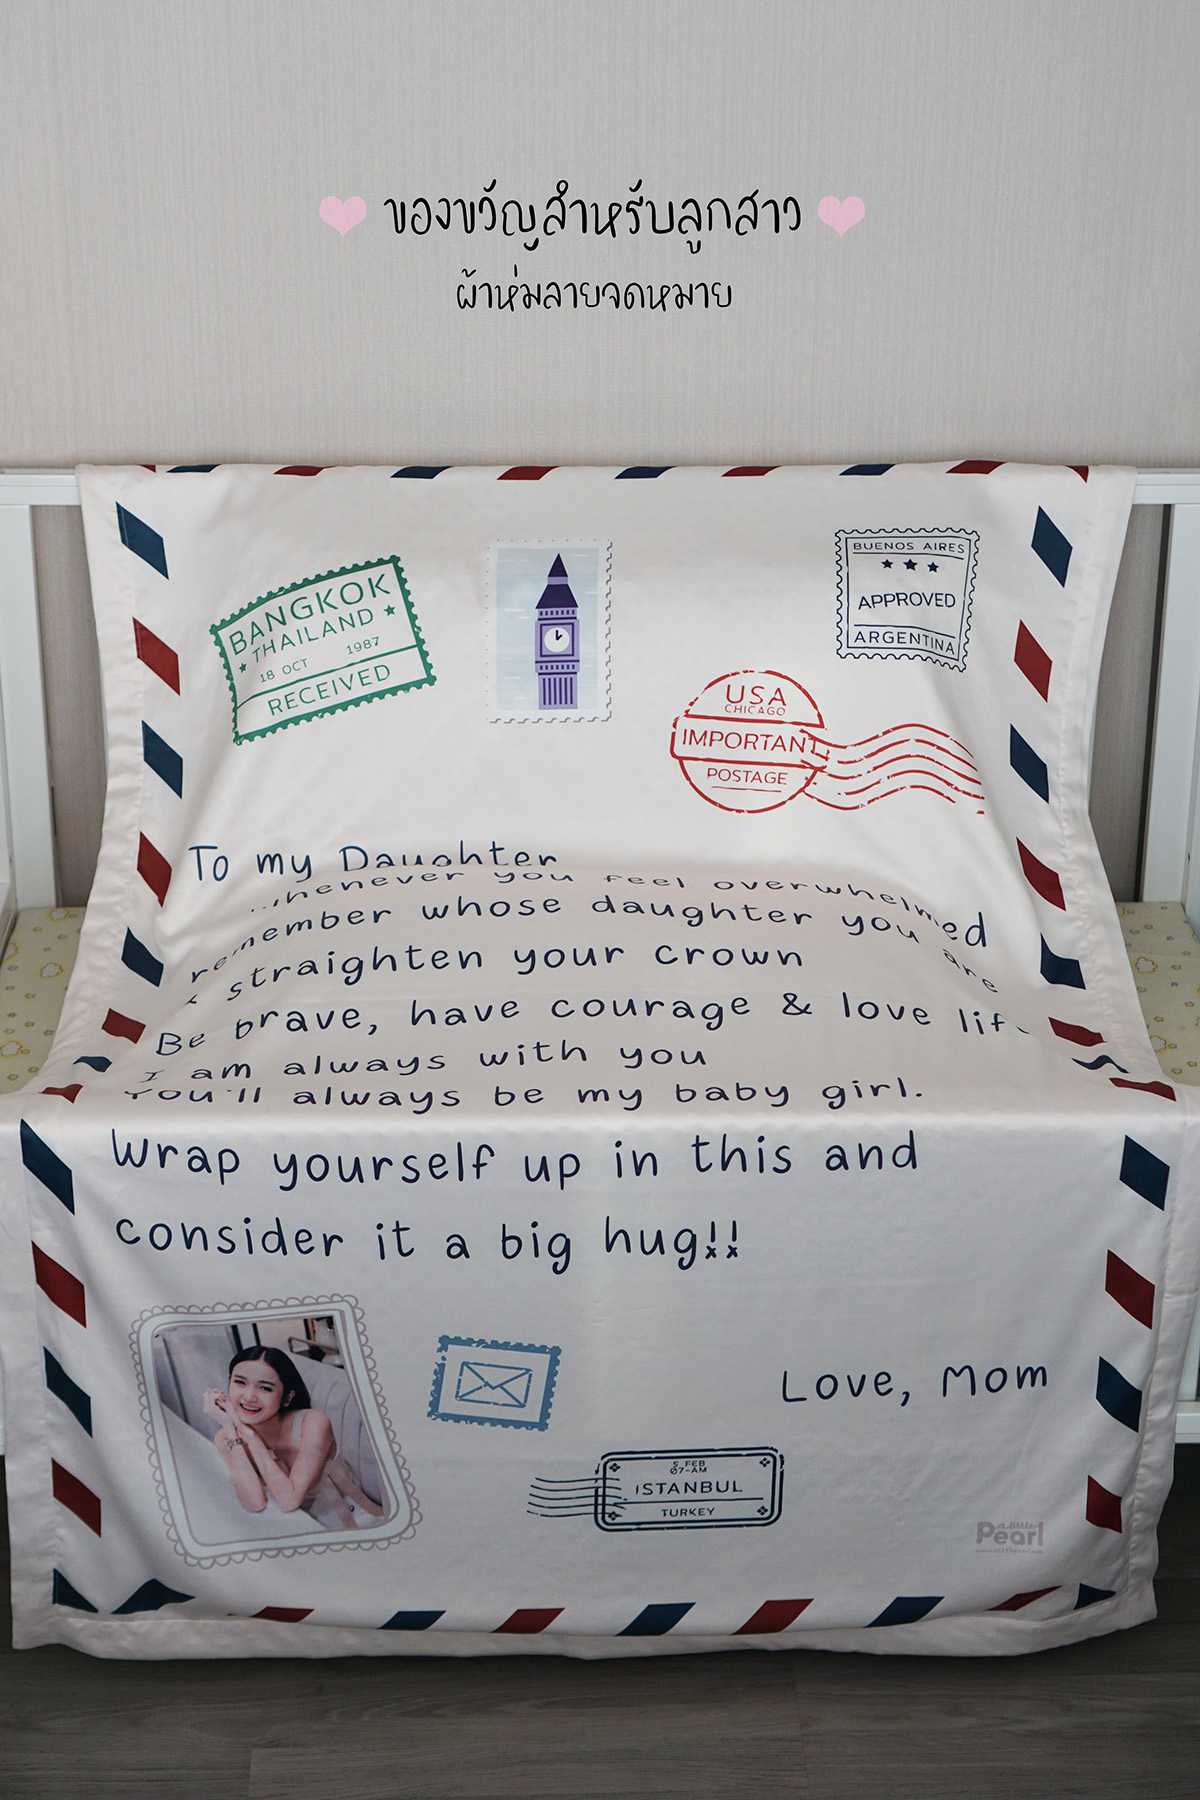 ของขวัญสำหรับลูกสาว
ผ้าห่มลายจดหมาย
BANGKOK
THAILAND
18 OCT 1987
RECEIVED
BUENOS AIRES
APPROVED
ARGENTINA
USA
CHICAGO
IMPORTANT
POSTAGE
To my Daughter
Whenever you feel overwhelmed
remember whose daughter you are
& straighten your crown
Be brave, have courage & love life
I am always with you
You'll always be my baby girl.
Wrap yourself up in this and
consider it a big hug!!
Love, Mom
5 FEB
07-AM
ISTANBUL
TURKEY
a little
Pearl